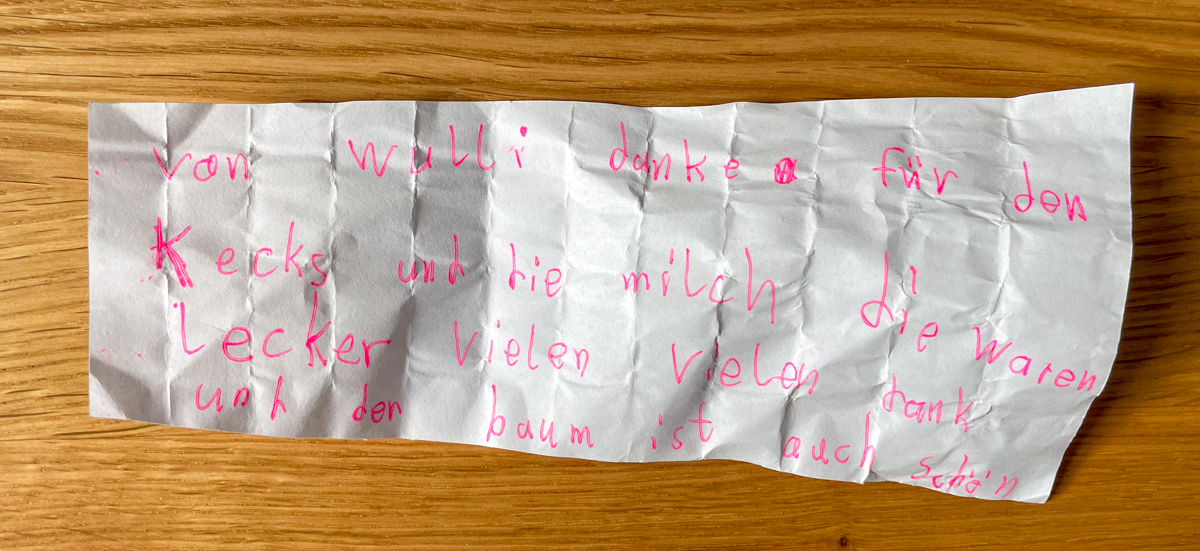 von wulli danke für den
Kecks und die milch die waren
lecker vielen vielen dank
und den baum ist auch schön